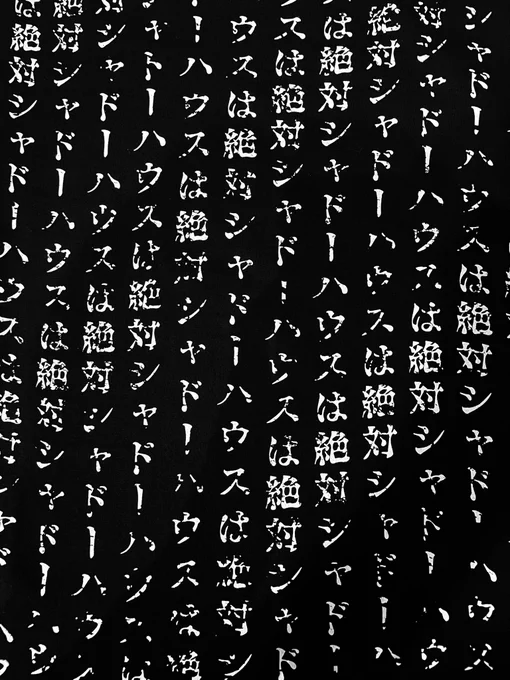 シャドーハウスは絶対シャドーハウス
対シャドーハウスは絶対シャドーハウ
絶対シャドーハウスは絶対シャドーハ
は絶対シャドーハウスは絶対シャドー
スは絶対シャドーハウスは絶対シャド
ウスは絶対シャドーハウスは絶対シ
ーハウスは絶対シャドーハウスは絶
ャドーハウスは絶対シャドーハウスは
対シャドーハウスは絶対シャドーハウ
絶対シャドーハウスは絶対シャドーハウ
は絶対シャドーハウスは絶対シャド